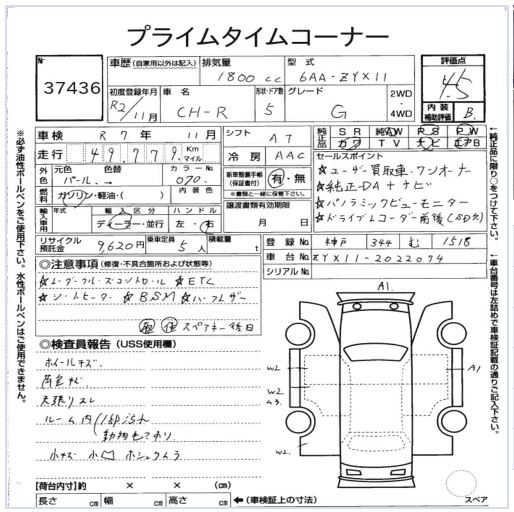 プライムタイムコーナー
No 37436
車歴 (自家用以外は記入) 排気量 1800 cc 型式 6AA-ZYX11
評価点 4.5
初度登録年月 R2/11月 車名 CH-R 形状・ドア数 5 グレード G 2WD・4WD
内装補助評価 B
車検 R 7 年 11 月 シフト AT 純正品 SR AW PS PW
カワ TV ナビ エアB
走行 49,779 km マイル 冷房 AAC
セールスポイント
外色 元色 パール 色替 カラーNo 070
新車整備手帳(保証書付) 有・無
☆ユーザー買取車・ワンオーナー
☆純正DA+ナビ
燃料 ガソリン・軽油・( ) 内装色
☆パノラミックビューモニター
輸入車用 年式 輸入区分 ディーラー・並行 ハンドル 左・右
譲渡書類有効期限 年 月 日
☆ドライブレコーダー前後(SD欠)
リサイクル預託金 9,620円 乗車定員 5人 積載量 t
登録No 神戸 344 む 1518
車台No ZYX11-2022074
シリアルNo
◎注意事項 (修復・不具合箇所および状態等)
☆レーダークルーズコントロール ☆ETC
☆シートヒーター ☆BSM ☆ハーフレザー
取 使 スペアキー後日
◎検査員報告 (USS使用欄)
ホイールキズ
天張りスレ
ルーム内
小キズ 小凹
A1.
W2
A1
W2
W2.
【荷台内寸】約 × × (cm)
長さ cm 幅 cm 高さ cm ←(車検証上の寸法)
スペア
※必ず油性ボールペンをご使用下さい。水性ボールペンはご使用できません。
←純正品に限り○をつけて下さい。
←車台番号は左詰めで車検証記載の通りご記入下さい。